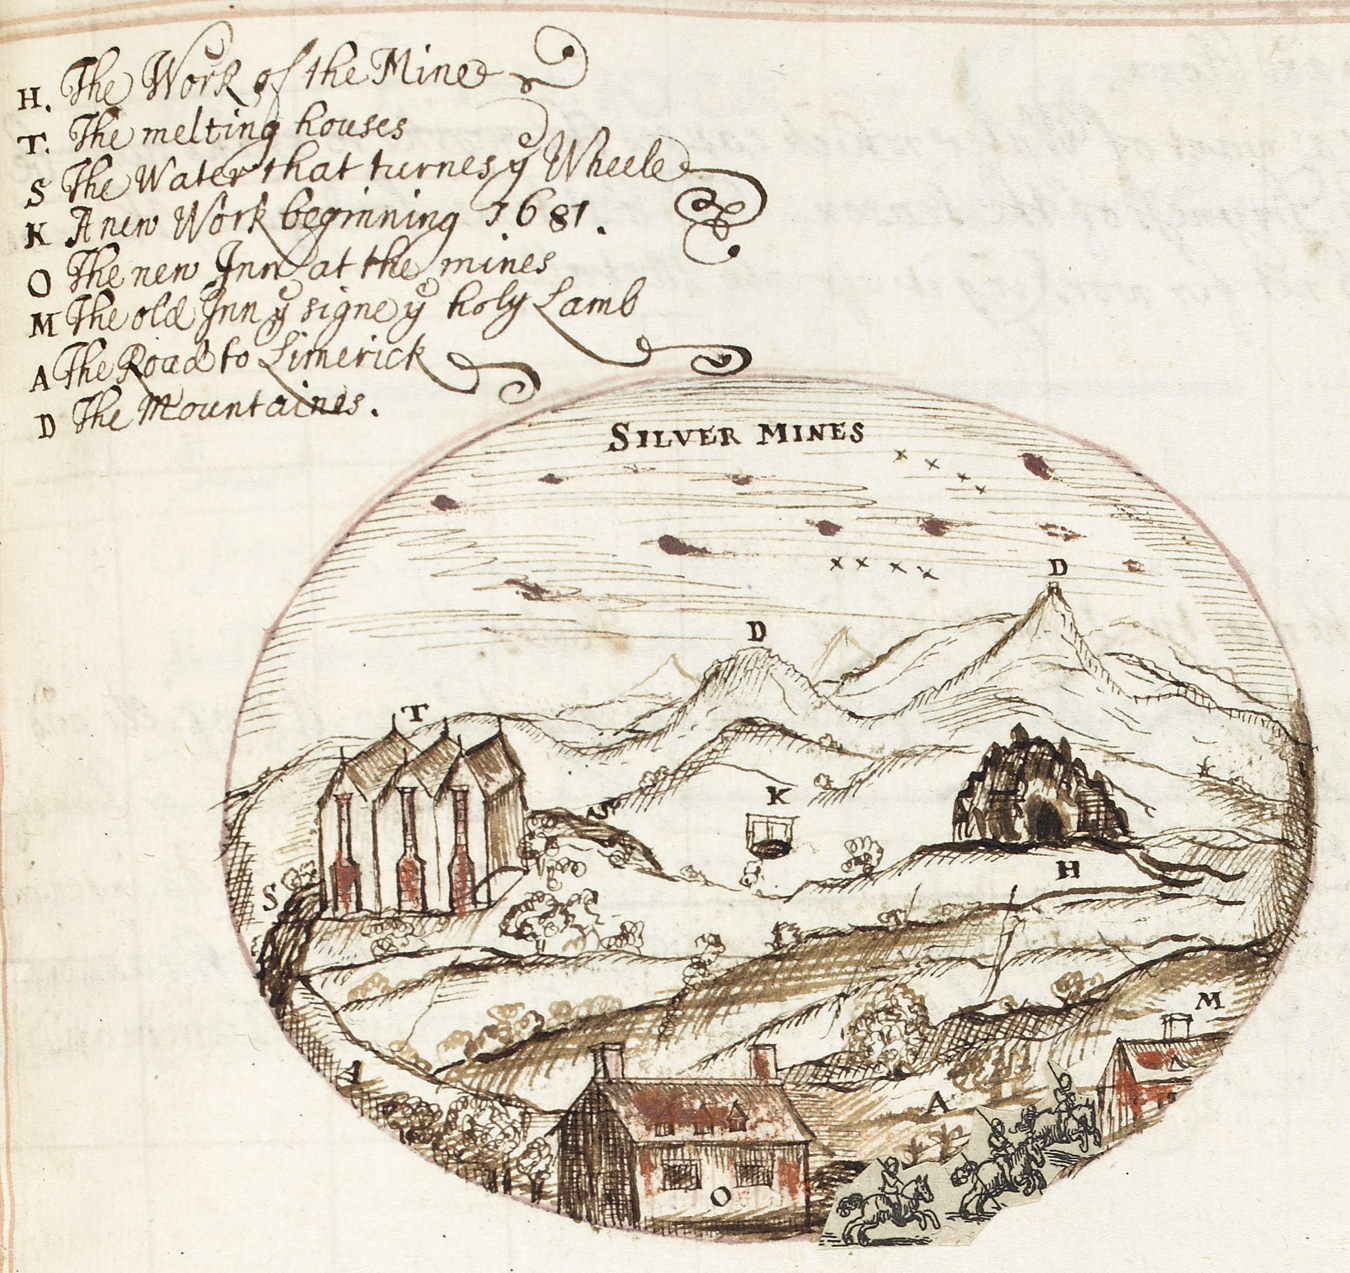 H. The Work of the Mine
T. The melting houses
S The Water that turnes yͤ Wheele
K A new Work beginning 1681.
O The new Inn at the mines
M The old Inn yͤ signe yͤ holy Lamb
A The Road to Limerick
D The Mountaines.
SILVER MINES
D
D
T
K
S
H
S
M
A
A
O